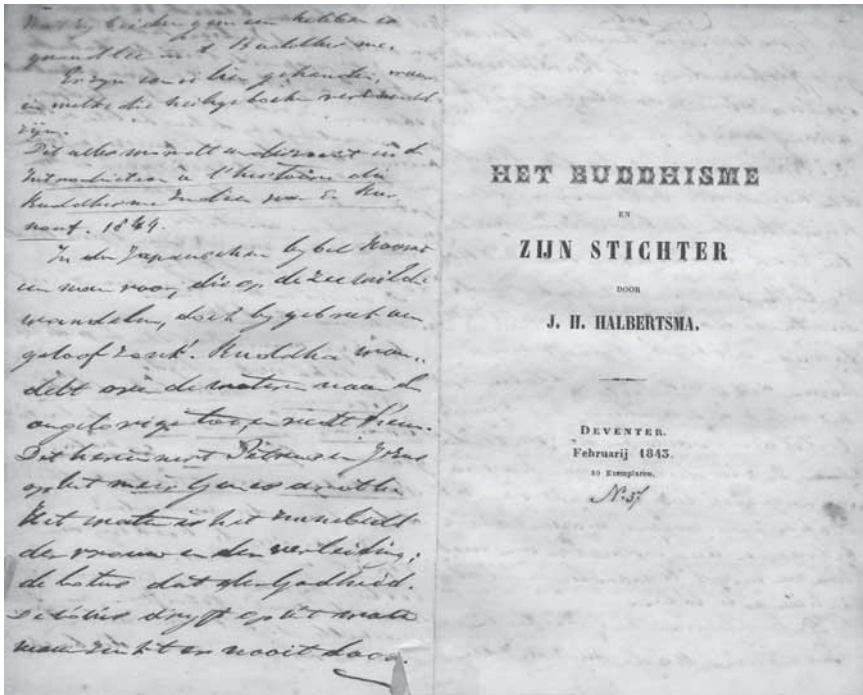 gemeen hebben is
in 't Buddhisme.
Er zijn
in welke die heilige boeken
zijn.
Dit alles wordt in de
Introduction à l'histoire du
Buddhisme Indien par E. Bur-
nouf. 1844.
In den Japanschen bijbel komt
een man voor, die op de zee wilde
wandelen, doch bij gebrek aan
geloof zonk. Buddha wan-
delt over de wateren naar den
ongelovige toe, en redt hem.
Dit herinnert Petrus en Jezus
op het meir Genesareth.
Het water is het zinnebeeld
der vrouw en der verleiding;
de lotus dat der Godheid.
De lotus drijft op het water
maar zinkt er nooit door.
HET BUDDHISME
EN
ZIJN STICHTER
DOOR
J. H. HALBERTSMA.
DEVENTER.
Februarij 1843.
50 Exemplaren.